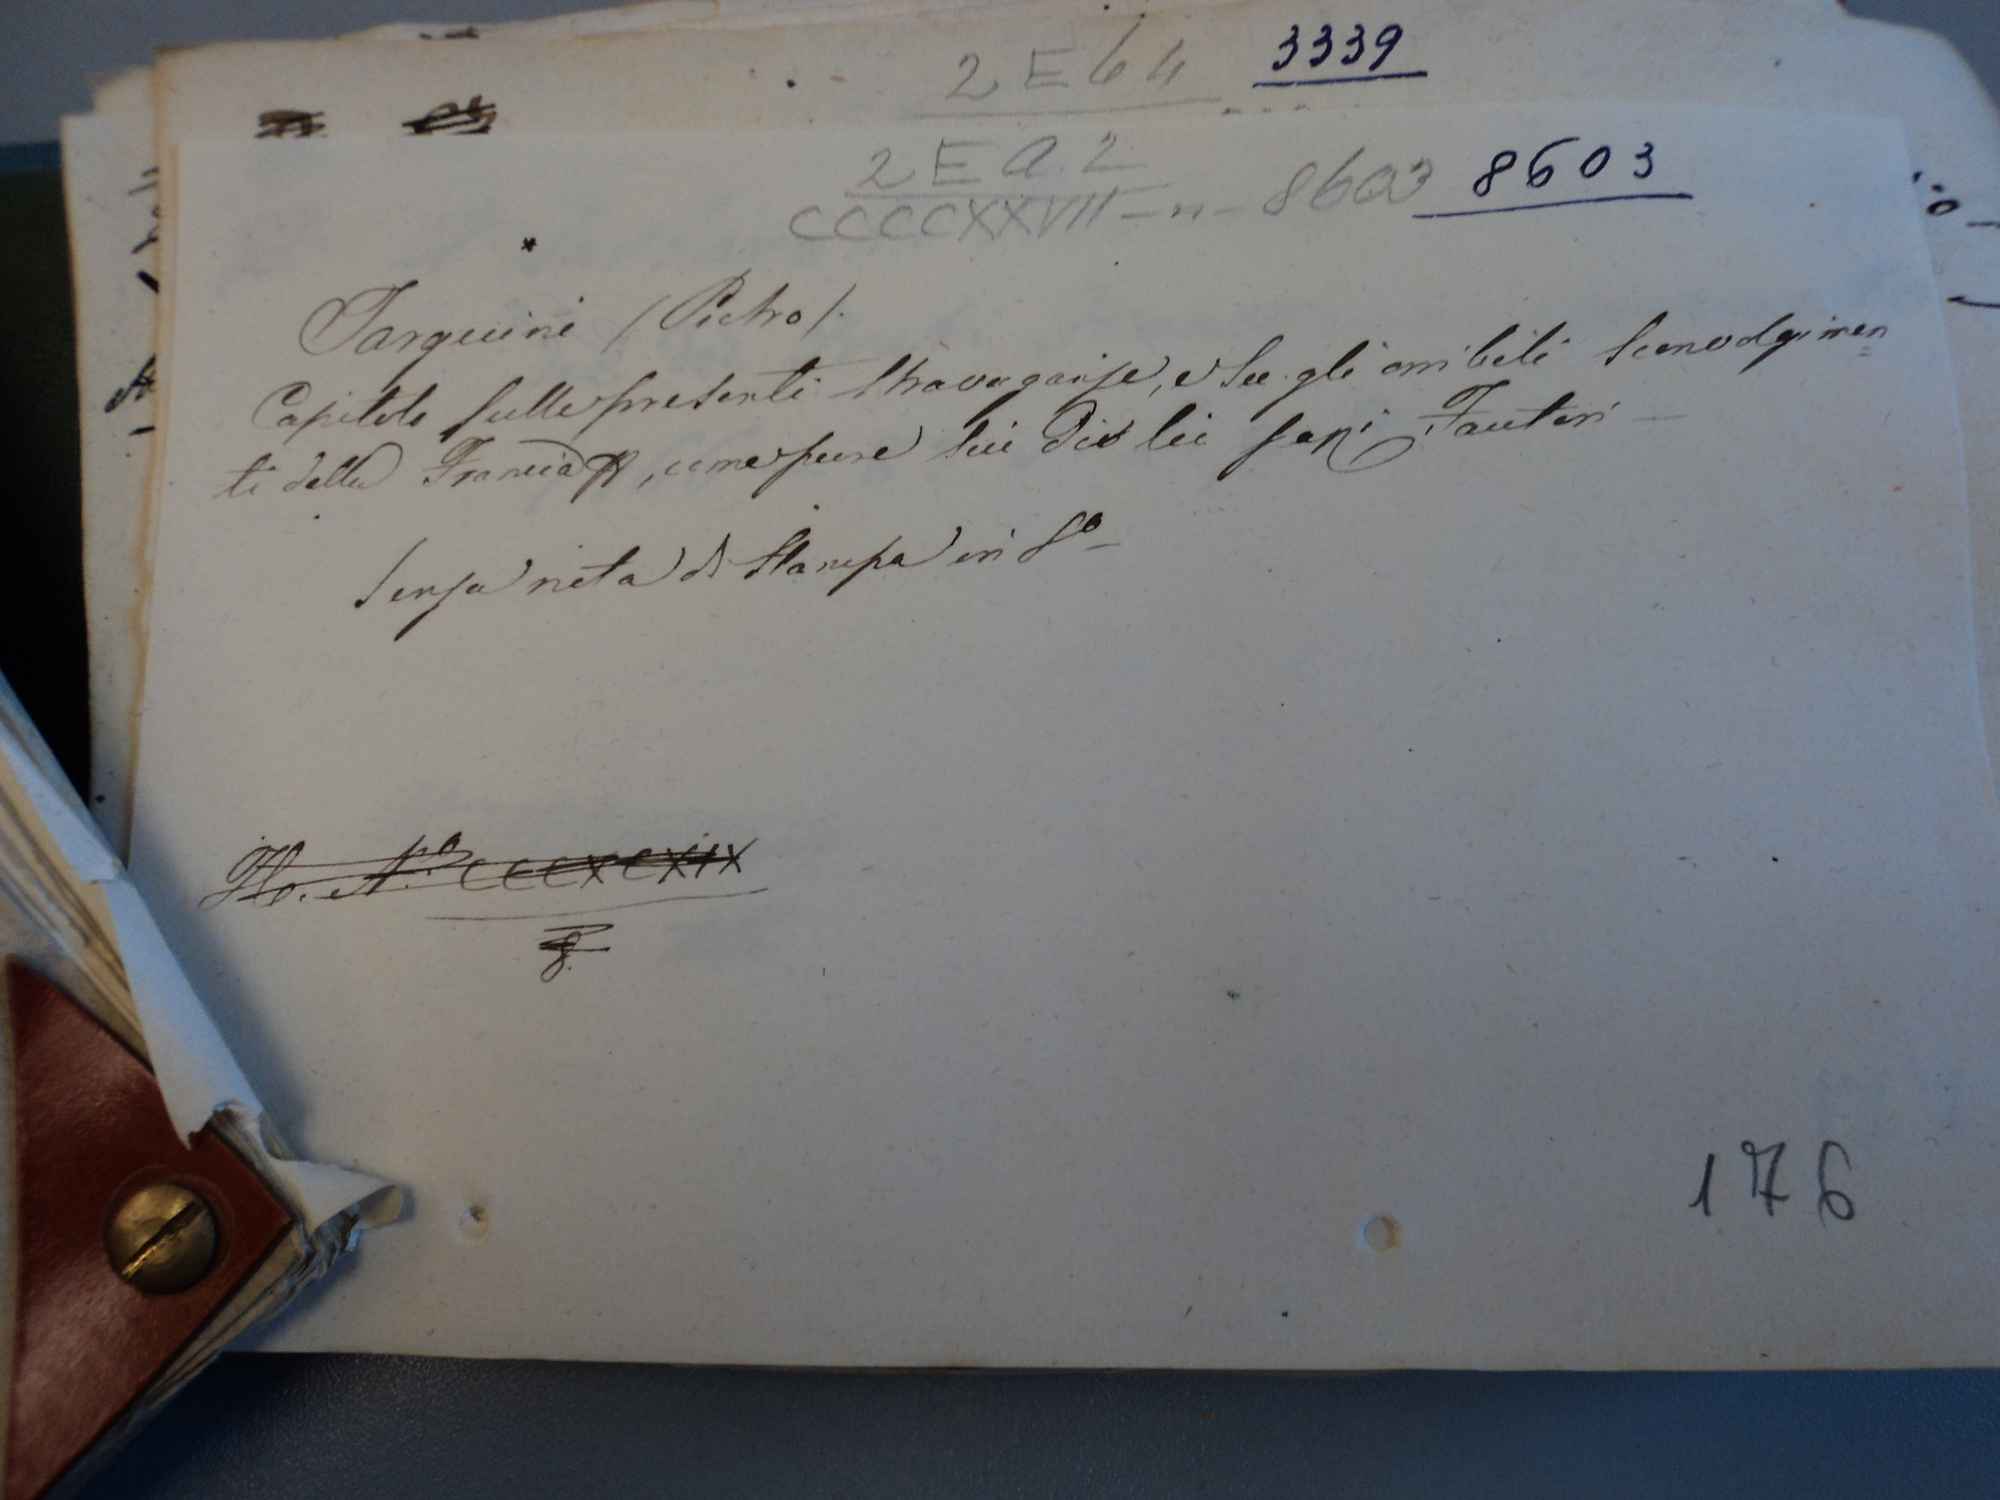 2 E 64 3339
2 E a. 2 8603 8603
CCCCXXVII - n -
Tarquini (Pietro).
Capitolo sulle presenti stravaganze, e su gli orribili sconvolgimen=
ti della Francia, come pure sui di lei Fautori -
Senza nota di Stampa in 8º
Ho. Nº CCCXCXIX
8.
176